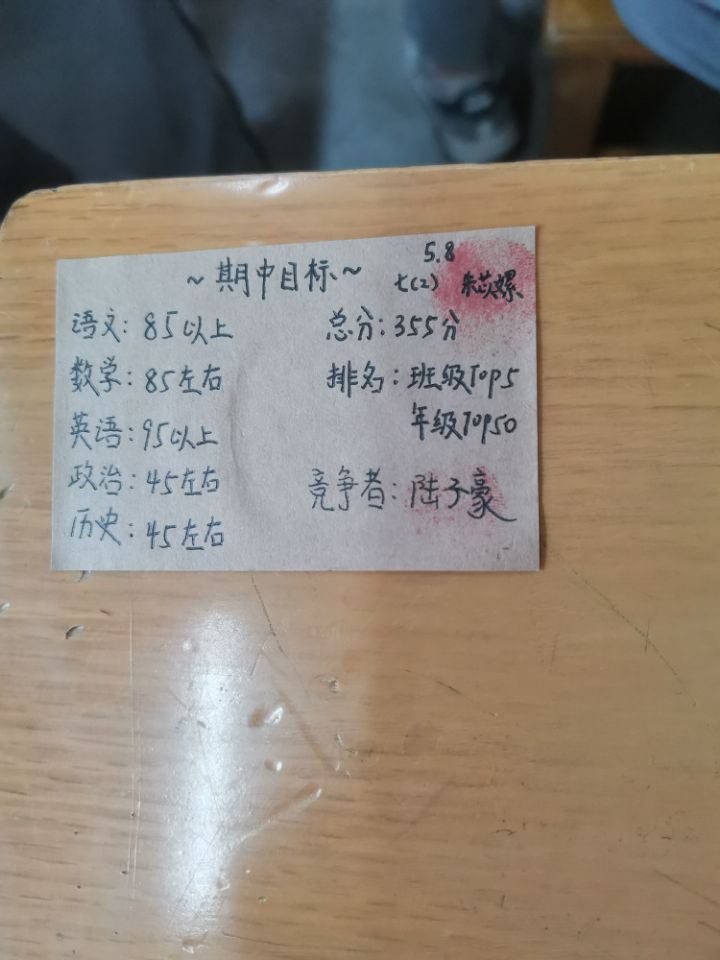 5.8
~期中目标~ 七(2) 朱苡嫘
语文：85以上 总分：355分
数学：85左右 排名：班级Top5
英语：95以上 年级Top50
政治：45左右 竞争者：陆子豪
历史：45左右